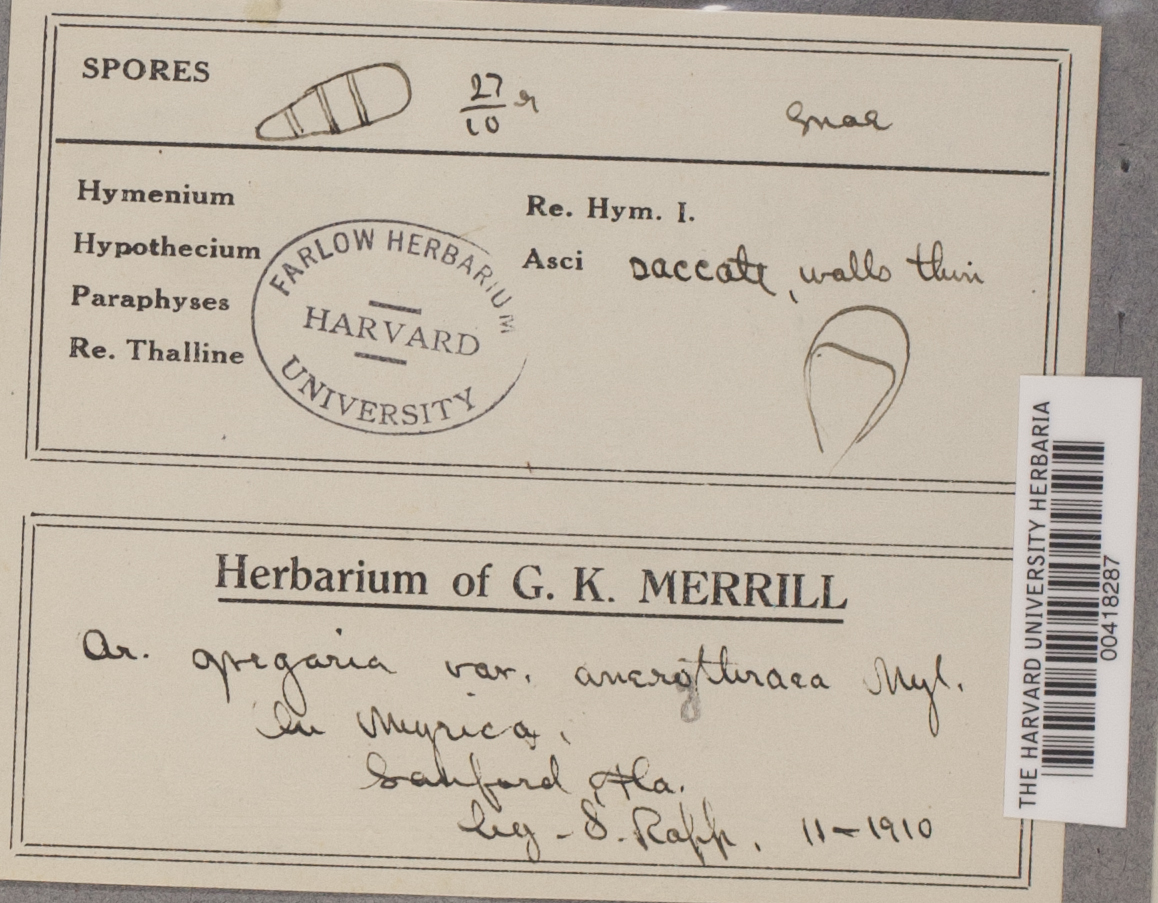 SPORES 27/10
Hymenium
Hypothecium
Paraphyses
Re. Thalline
FARLOW HERBARIUM
HARVARD
UNIVERSITY
Re. Hym. I.
Asci saccate, walls thin
THE HARVARD UNIVERSITY HERBARIA
00418287
Herbarium of G. K. MERRILL
Ar. gregaria var. Nyl.
On Myrica.
Sanford Fla.
leg - S. Rapp. 11-1910